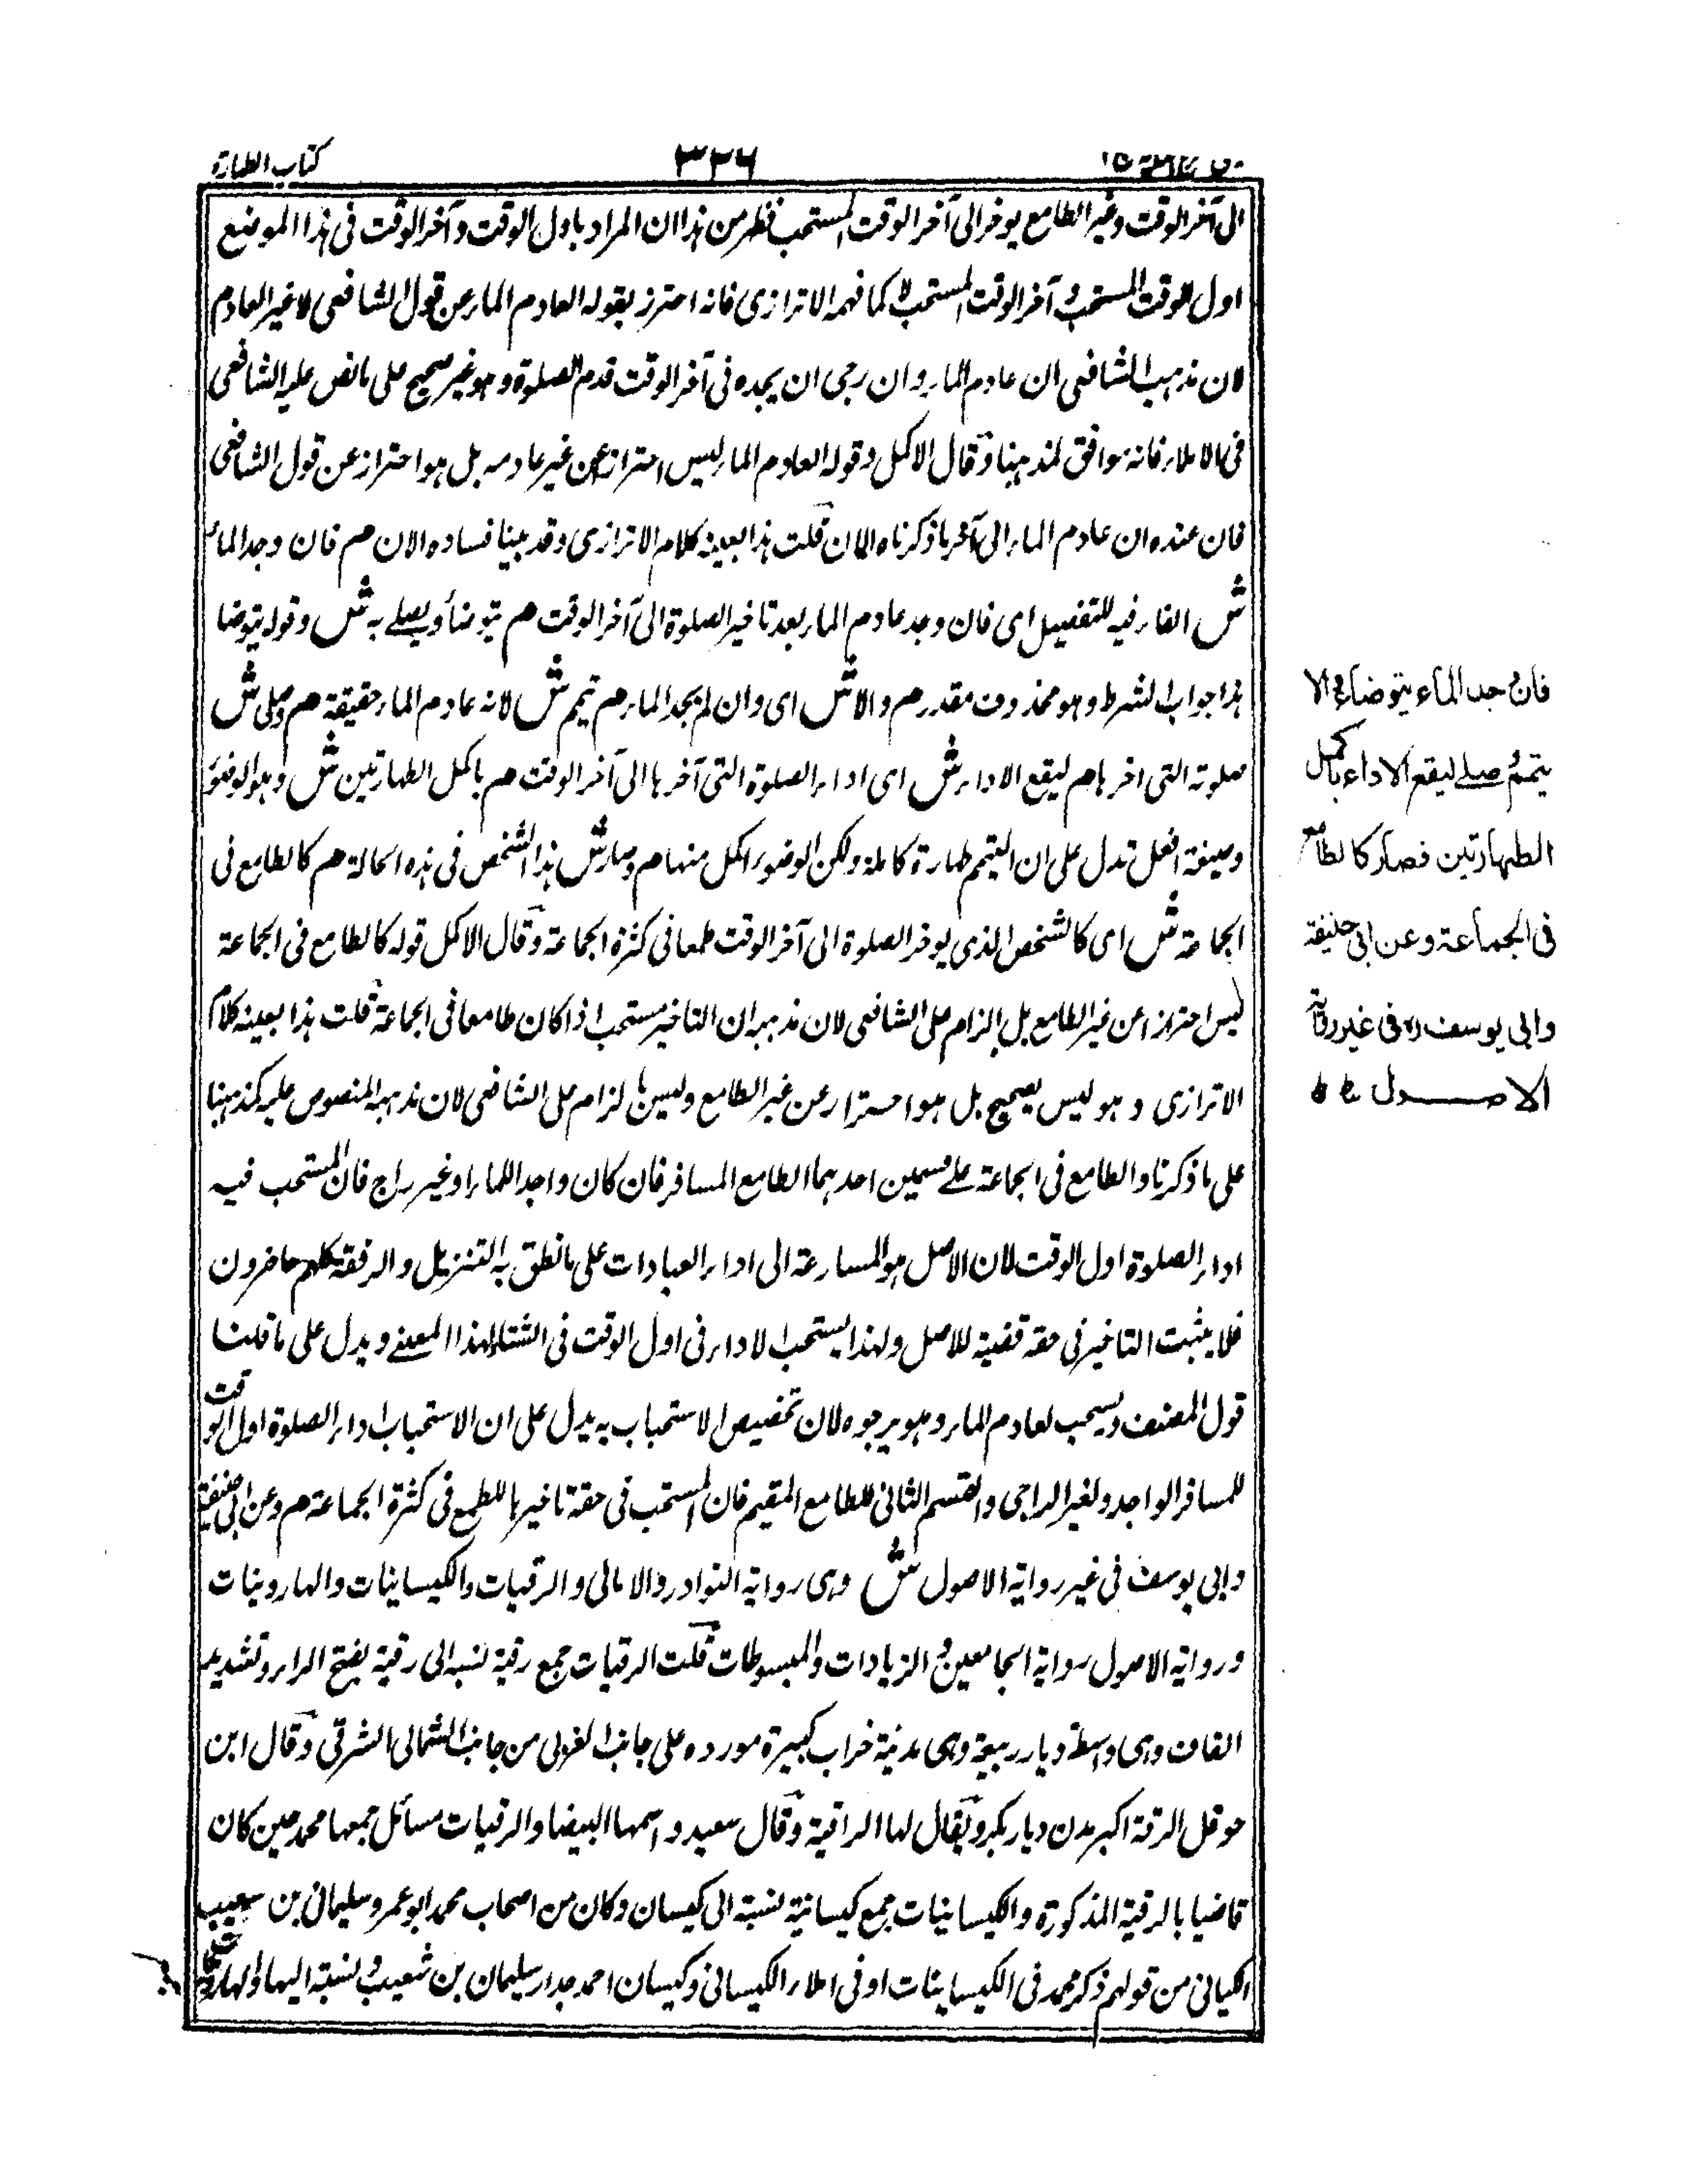 كتاب الطهارة
٣٢٦
الى آخر الوقت وغير الطامع يوخر الى آخر الوقت المستحب فظهر من هذا ان المراد باول الوقت وآخر الوقت فى هذا الموضع
اول الوقت المستحب و آخر الوقت المستحب لا كما فهمه الاترازى فانه احترز بقوله العادم الماء عن قول الشافعى لا غير العادم
لان مذهب الشافعى ان عادم الماء وان رجى ان يجده فى آخر الوقت قدم الصلوة وهو غير صحيح على ما نص عليه الشافعى
فى الاملاء فانه موافق لمذهبنا وقال الاكمل وقوله العادم الماء ليس احترازا عن غير عادمه بل هو احتراز عن قول الشافعى
فان عنده ان عادم الماء الى آخر ما ذكرناه الان قلت هذا بعينه كلام الاترازى وقد بينا فساده الان هم فان وجد الماء
ش الفاء فيه للتفصيل اى فان وجد عادم الماء بعد تاخير الصلوة الى آخر الوقت هم يتوضأ ويصلے به ش وقوله يتوضا
هذا جواب الشرط وهو محذوف مقدر هم والا ش اى وان لم يجد الماء هم تيمم ش لانه عادم الماء حقيقة هم وصلى ش
صلوته التى اخرها هم ليقع الاداء ش اى اداء الصلوة التى آخرها الى آخر الوقت هم باكمل الطهارتين ش وهو الوضوء
وصيغة افعل تدل على ان التيمم طهارة كاملة ولكن الوضوء اكمل منها هم وصار ش هذا الشخص فى هذه الحالة هم كالطامع فى
الجماعة ش اى كالشخص الذى يوخر الصلوة الى آخر الوقت طمعا فى كثرة الجماعة وقال الاكمل قوله كالطامع فى الجماعة
ليس احترازا عن غير الطامع بل الزام على الشافعى لان مذهبه ان التاخير مستحب اذا كان طامعا فى الجماعة قلت هذا بعينه كلام
الاترازى و هو ليس بصحيح بل هو احتراز عن غير الطامع وليس بالزام على الشافعى لان مذهبه المنصوص عليه كمذهبنا
على ما ذكرنا والطامع فى الجماعة علے قسمين احدهما الطامع المسافر فان كان واجدا للماء او غير راج فان المستحب فيه
اداء الصلوة اول الوقت لان الاصل هو المسارعة الى اداء العبادات على ما نطق به التنزيل والرفقة كلهم حاضرون
فلا يثبت التاخير فى حقه قضية للاصل ولهذا يستحب الاداء فى اول الوقت فى الشتاء لهذا المعنے ويدل على ما قلنا
قول المصنف ويستحب لعادم الماء وهو يرجوه لان تخصيص الاستحباب به يدل على ان الاستحباب اداء الصلوة اول الوقت
للمسافر الواجد ولغير الراجى والقسم الثانى للطامع المقيم فان المستحب فى حقه تاخيرها للطمع فى كثرة الجماعة هم وعن ابى حنيفة
وابى يوسف فى غير رواية الاصول ش وهى رواية النوادر والامالى والرقيات والكيسانيات والهارونيات
ورواية الاصول رواية الجامعين و الزيادات والمبسوطات قلت الرقيات جمع رقية نسبة الى رقية بفتح الراء وتشديد
القاف وهى واسطة ديار ربيعة وهى مدينة خراب كبيرة مورده على جانب الغربى من جانب الشمالى الشرقى وقال ابن
حوقل الرقة اكبر مدن ديار بكر ويقال لها الراقية وقال سعيد واسمها البيضا والرقيات مسائل جمعها محمد حين كان
قاضيا بالرقية المذكورة والكيسانيات جمع كيسانية نسبة الى كيسان وكان من اصحاب محمد ابو عمرو سليمان بن سعيب
الكيانى من قولهم ذكر محمد فى الكيسانيات او فى املاء الكيسانى وكيسان احمد جداء سليمان بن شعيب و نسبة اليها
فان وجد الماء يتوضا والا
يتمم و صلے ليقع الاداء باكمل
الطهارتين فصار كالطامع
فى الجماعة وعن ابى حنيفة
وابى يوسف رہ فى غير رواية
الاصول